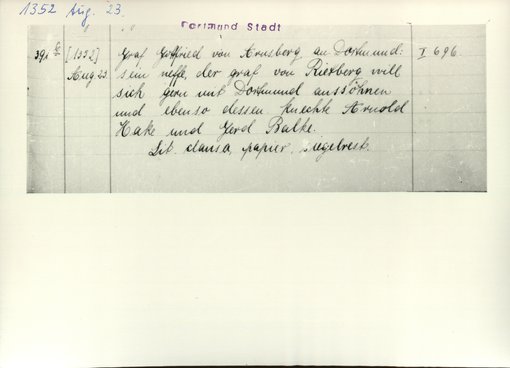 1352 Aug. 23.
Dortmund Stadt
" " "
391 [1352] Graf Gottfried von Arnsberg an Dortmund: I 696.
Aug 23. sein neffe, der graf von Rietberg will
sich gern mit Dortmund aussöhnen
und ebenso dessen knechte Arnold
Hake und Gerd Balke.
Lit. clausa, papier, siegelrest.